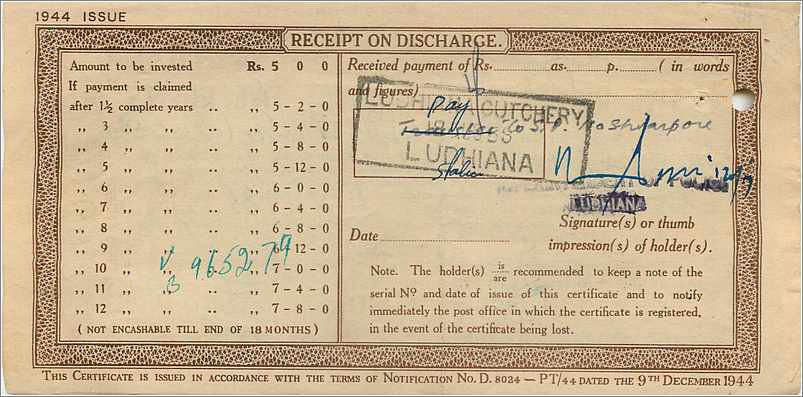 1944 ISSUE
RECEIPT ON DISCHARGE.
Amount to be invested Rs. 5 0 0
If payment is claimed
after 1½ complete years .. ,, 5 - 2 - 0
,, 3 ,, ,, .. ,, 5 - 4 - 0
,, 4 ,, ,, .. ,, 5 - 8 - 0
,, 5 ,, ,, .. ,, 5 - 12 - 0
,, 6 ,, ,, .. ,, 6 - 0 - 0
,, 7 ,, ,, .. ,, 6 - 4 - 0
,, 8 ,, ,, .. ,, 6 - 8 - 0
,, 9 ,, ,, .. ,, 6 - 12 - 0
,, 10 ,, ,, .. ,, 7 - 0 - 0
,, 11 ,, ,, .. ,, 7 - 4 - 0
,, 12 ,, ,, .. ,, 7 - 8 - 0
965279
( NOT ENCASHABLE TILL END OF 18 MONTHS )
Received payment of Rs. as. p. ( in words
and figures)
Pay
LUDHIANA CUTCHERY
LUDHIANA
to S.P. Hoshiarpore
LUDHIANA
Signature(s) or thumb
Date impression(s) of holder(s).
Note. The holder(s) is/are recommended to keep a note of the
serial Nº and date of issue of this certificate and to notify
immediately the post office in which the certificate is registered,
in the event of the certificate being lost.
THIS CERTIFICATE IS ISSUED IN ACCORDANCE WITH THE TERMS OF NOTIFICATION NO. D. 8024 — PT/44 DATED THE 9TH DECEMBER 1944